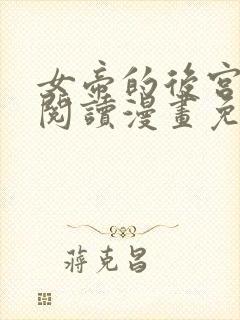 女帝的後宮
閱讀漫畫免
蔣克昌